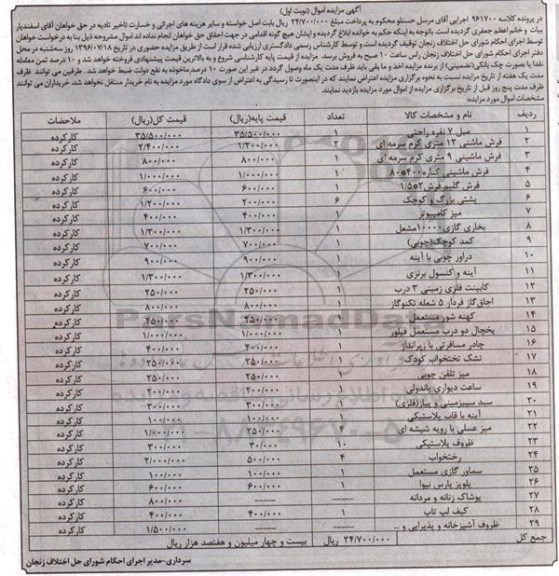 آگهی مزایده اموال (نوبت اول)
در پرونده کلاسه ۹۶۱۷۰۰ اجرایی آقای مرسل حسنلو محکوم به پرداخت مبلغ ۲۴/۷۰۰/۰۰۰ ریال بابت اصل خواسته و سایر هزینه های اجرائی و خسارت تاخیر تادیه در حق خواهان آقای اسفندیار
بیات و خانم اعظم جعفری گردیده است. باتوجه به اینکه حکم به خوانده ابلاغ گردیده و ایشان هیچ گونه اقدامی در جهت احقاق حق خواهان انجام نداده اند اموال مشروحه ذیل بنا به درخواست خواهان
توسط اجرای احکام شورای حل اختلاف زنجان توقیف گردیده است و توسط کارشناس رسمی دادگستری ارزیابی شده قرار است از طریق مزایده حضوری در تاریخ ۱۳۹۶/۰۷/۱۸ روز سه‌شنبه در محل
دفتر اجرای احکام شورای حل اختلاف زنجان راس ساعت ۱۰ صبح به فروش برسد. مزایده از قیمت پایه کارشناسی شروع و به بالاترین قیمت پیشنهادی فروخته خواهد شد و ۱۰ درصد ثمن معامله
نقدا یا بصورت چک بانکی(تضمینی) از برنده مزایده اخذ و ما بقی باید ظرف مدت یک ماه وصول گردد در غیر این صورت ۱۰ درصد ماخوذه به نفع دولت ضبط خواهد شد. طرفین می توانند ظرف
مدت یک هفته از تاریخ مزایده نسبت به نحوه برگزاری مزایده اعتراض نمایند که در اینصورت تا رسیدگی به اعتراض از سوی دادگاه مورد مزایده به نام خریدار منتقل نخواهد شد. خریداران می توانند
ظرف مدت پنج روز قبل از تاریخ برگزاری مزایده از اموال مورد مزایده بازدید نمایند.
مشخصات اموال مورد مزایده
ردیف نام و مشخصات کالا تعداد قیمت پایه(ریال) قیمت کل(ریال) ملاحضات
۱ مبل ۷ نفره راحتی ۱ ۳۵/۵۰۰/۰۰۰ ۳۵/۵۰۰/۰۰۰ کارکرده
۲ فرش ماشینی ۱۲ متری کرم سرمه ای ۲ ۱/۲۰۰/۰۰۰ ۲/۴۰۰/۰۰۰ کارکرده
۳ فرش ماشینی ۹ متری کرم سرمه ای ۱ ۸۰۰/۰۰۰ ۸۰۰/۰۰۰ کارکرده
۴ فرش ماشینی کناره ۴۰۰*۸۰ ۱ ۱/۰۰۰/۰۰۰ ۱/۰۰۰/۰۰۰ کارکرده
۵ فرش گلیم فرش ۲*۱/۵ ۱ ۶۰۰/۰۰۰ ۶۰۰/۰۰۰ کارکرده
۶ پشتی بزرگ و کوچک ۶ ۲۰۰/۰۰۰ ۱/۲۰۰/۰۰۰ کارکرده
۷ میز کامپیوتر ۱ ۴۰۰/۰۰۰ ۴۰۰/۰۰۰ کارکرده
۸ بخاری گازی ۱۰۰۰۰ مشعل ۱ ۱/۳۰۰/۰۰۰ ۱/۳۰۰/۰۰۰ کارکرده
۹ کمد کوچک(چوبی) ۱ ۷۰۰/۰۰۰ ۷۰۰/۰۰۰ کارکرده
۱۰ دراور چوبی با آینه ۱ ۹۰۰/۰۰۰ ۹۰۰/۰۰۰ کارکرده
۱۱ آینه و کنسول برنزی ۱ ۱/۳۰۰/۰۰۰ ۱/۳۰۰/۰۰۰ کارکرده
۱۲ کابینت فلزی زمینی ۳ درب ۱ ۲۵۰/۰۰۰ ۲۵۰/۰۰۰ کارکرده
۱۳ اجاق‌گاز فردار ۵ شعله تکنوگاز ۱ ۸۰۰/۰۰۰ ۸۰۰/۰۰۰ کارکرده
۱۴ کهنه شور مستعمل ۱ ۴۵۰/۰۰۰ کارکرده
۱۵ یخچال دو درب مستعمل فیلور ۱ ۱/۰۰۰/۰۰۰ ۱/۰۰۰/۰۰۰ کارکرده
۱۶ چادر مسافرتی با زیرانداز ۱ ۴۰۰/۰۰۰ ۴۰۰/۰۰۰ کارکرده
۱۷ تشک تختخواب کودک ۱ ۲۵۰/۰۰۰ ۲۵۰/۰۰۰ کارکرده
۱۸ میز تلفن چوبی ۱ ۲۵۰/۰۰۰ ۲۵۰/۰۰۰ کارکرده
۱۹ ساعت دیواری پاندولی ۱ ۲۰۰/۰۰۰ ۲۰۰/۰۰۰ کارکرده
۲۰ سبد سیب‌زمینی و پیاز(فلزی) ۱ ۳۰۰/۰۰۰ ۳۰۰/۰۰۰ کارکرده
۲۱ آینه با قاب پلاستیکی ۱ ۱۰۰/۰۰۰ ۱۰۰/۰۰۰ کارکرده
۲۲ میز عسلی با رویه شیشه ای ۴ ۲۵۰/۰۰۰ کارکرده
۲۳ ظروف پلاستیکی ۱۰ ۳۰/۰۰۰ ۳۰۰/۰۰۰ کارکرده
۲۴ رختخواب ۴ ۵۰۰/۰۰۰ ۲/۰۰۰/۰۰۰ کارکرده
۲۵ سماور گازی مستعمل ۱ ۱۰۰/۰۰۰ ۱۰۰/۰۰۰ کارکرده
۲۶ پلوپز پارس نیوا ۱ ۶۰۰/۰۰۰ ۶۰۰/۰۰۰ کارکرده
۲۷ پوشاک زنانه و مردانه ۸۰۰/۰۰۰ کارکرده
۲۸ کیف لپ تاپ ۱ ۴۰۰/۰۰۰ ۴۰۰/۰۰۰ کارکرده
۲۹ ظروف آشپزخانه و پذیرایی و ... ۱/۵۰۰/۰۰۰ کارکرده
جمع کل ۲۴/۷۰۰/۰۰۰ ریال بیست و چهار میلیون و هفتصد هزار ریال
سرداری-مدیر اجرای احکام شورای حل اختلاف زنجان